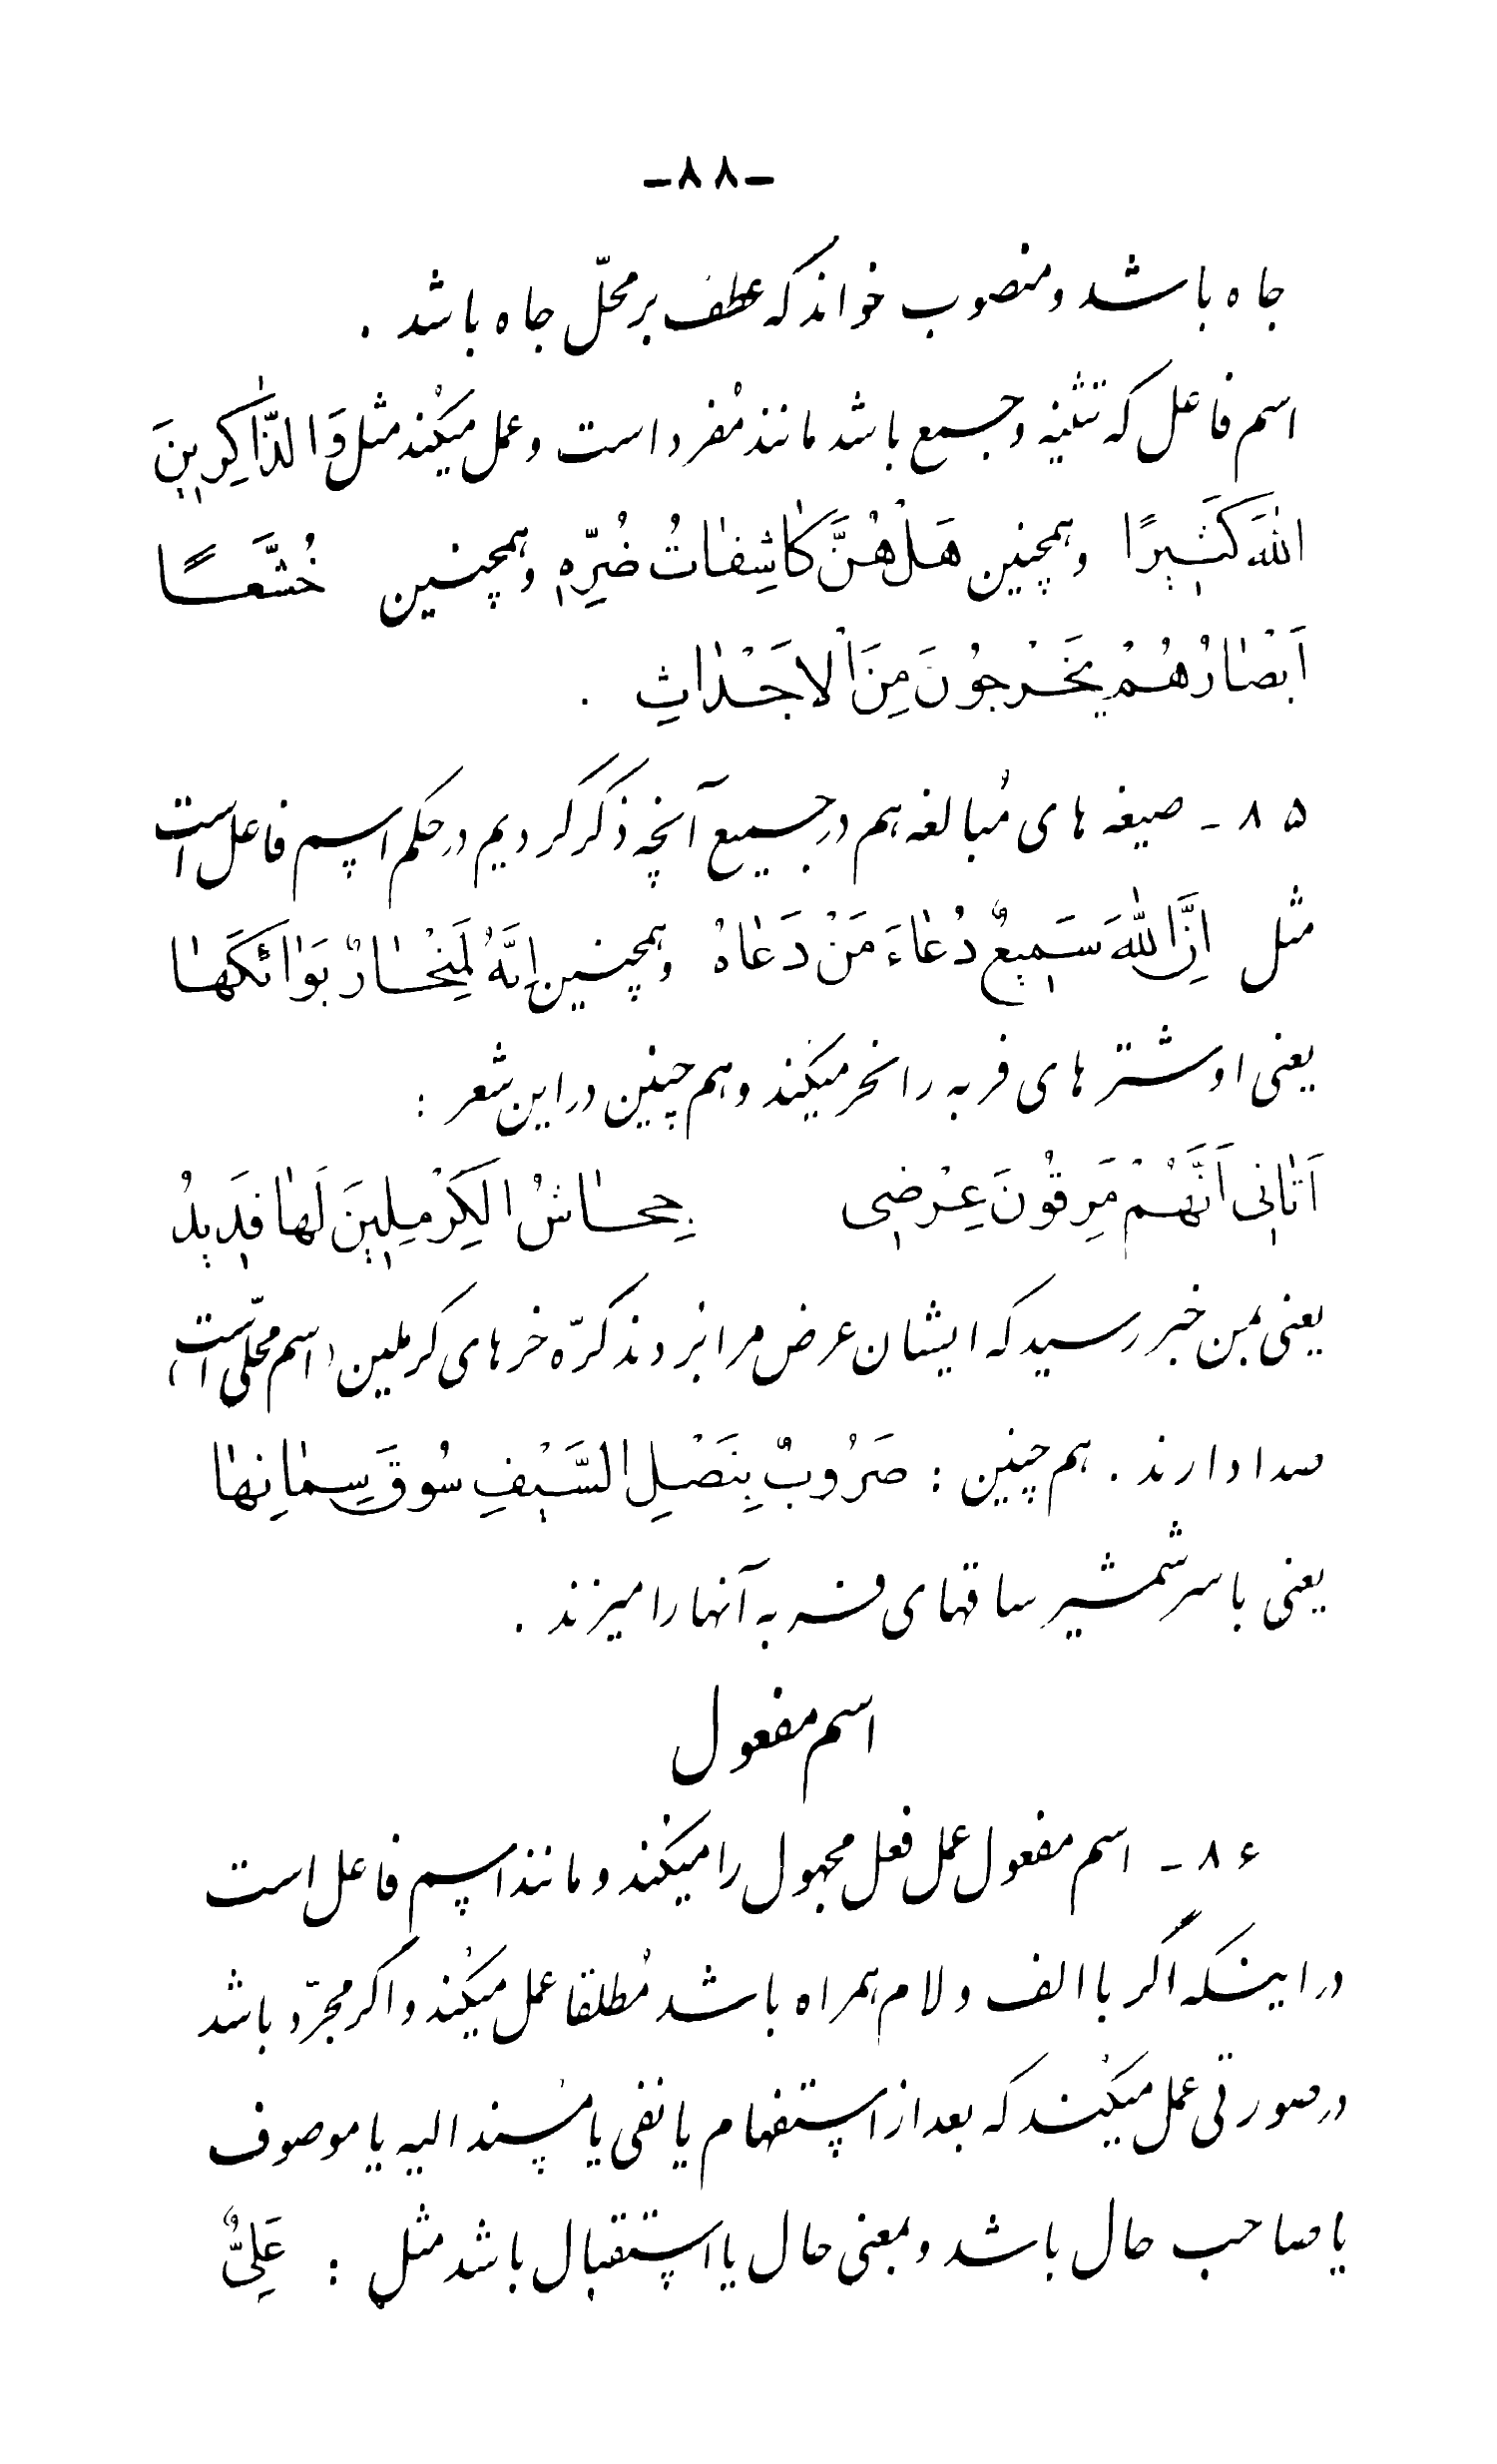 -۸۸-
جاه باشد و منصوب خواند که عطف بر محلّ جاه باشد .
اسم فاعل که تثنیه و جمع باشد مانند مُفرد است و عمل میکند مثل وَالذّٰاکِرِینَ
اللّٰهَ کَثیٖرًا وهمچنین هَلْ هُنَّ کٰاشِفٰاتُ ضُرِّهٖ وهمچنین خُشَّعًا
اَبْصٰارُهُمْ یَخْرجُونَ مِنَ الْاَجَدْاثِ .
۸۵ - صیغه های مُبالغه هم در جمیع آنچه ذکر کردیم در حکم اسم فاعل است
مثل اِنَّ اللّٰهَ سَمیٖعٌ دُعٰاءَ مَنْ دَعٰاهُ وهمچنین اِنَّهُ لَمِنْحٰارٌ بَوٰائَکَهٰا
یعنی او شترهای فربه را نحر میکند و هم چنین در این شعر :
اَتٰانیٖ اَنَّهُمْ مَزِقُونَ عِرْضیٖ جِحٰاشُ الکِرْمِلیٖنَ لَهٰا فَدیٖدُ
یعنی بمن خبر رسید که ایشان عرض مرا بردند کرّه خرهای کرملین (اسم محلّی است)
صدا دارند . هم چنین : ضَرُوبٌ بِنَصْلِ السَّیْفِ سُوقَ سِمٰانِهٰا
یعنی با سر شمشیر ساقهای فربه آنها را میزند .
اسم مفعول
۸۶ - اسم مفعول عمل فعل مجهول را میکند و مانند اسم فاعل است
در اینکه اگر با الف و لام همراه باشد مُطلقا عمل میکند و اگر مجرّد باشد
در صورتی عمل میکند که بعد از استفهام یا نفی یا مُسند الیه یا موصوف
یا صاحب حال باشد و بمعنی حال یا استقبال باشد مثل : عَلِیٌّ